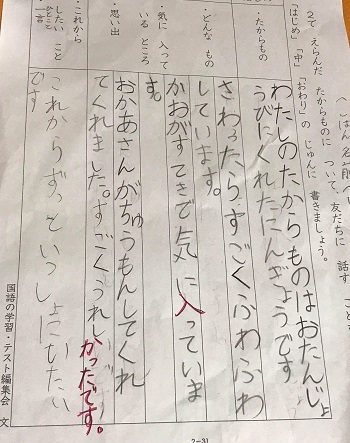 2で えらんだ たからものに ついて、友だちに 話す
「はじめ」「中」「おわり」の じゅんに 書きましょう。
・たからもの
わたしのたからものはおたんじょ
うびにくれたにんぎょうです
・どんな もの
さわったら、すごくふわふわ
しています。
・気に 入って
いる ところ
かおがすてきで気に入っていま
す。
・思い出
おかあさんがちゅうもんしてくれ
てくれました。すごくうれしかったです。
・これから
したい こと
ひとこと
・一言
これからずっといっしょにいたい
です
国語の学習・テスト編集会 文
2-31